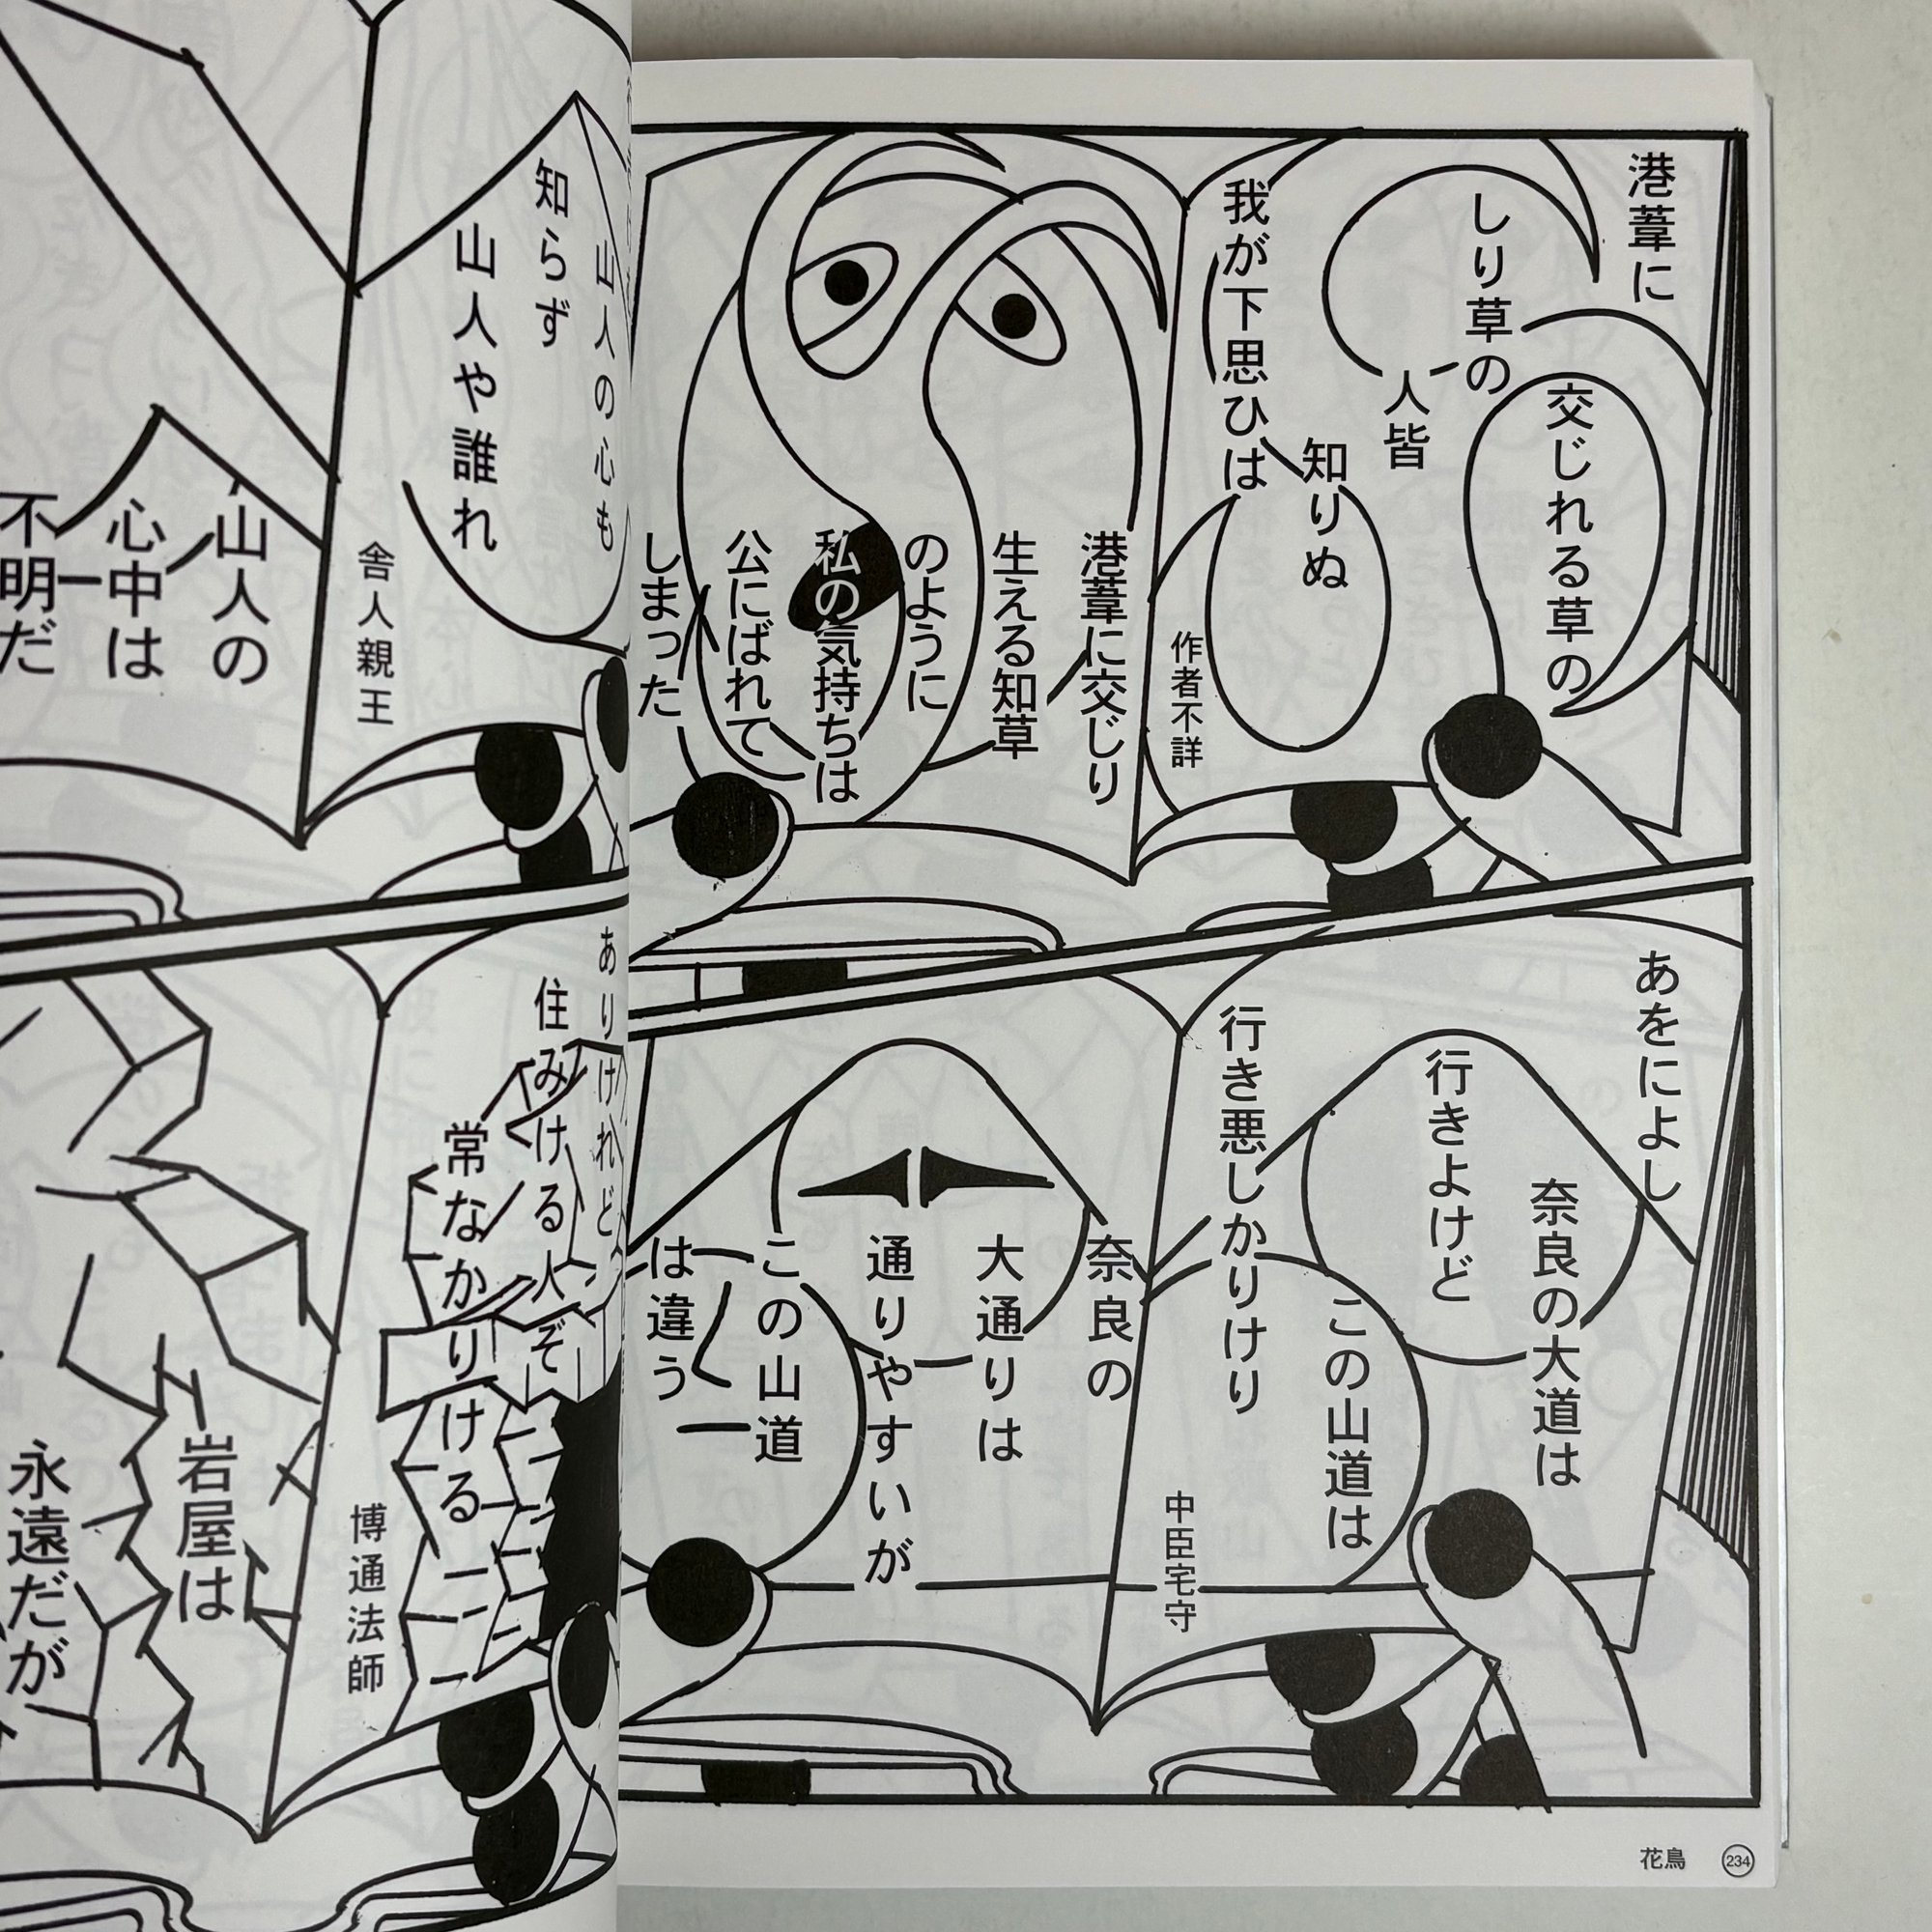 港葦に
交じれる草の
しり草の
人皆
知りぬ
我が下思ひは
作者不詳
港葦に交じり
生える知草
のように
私の気持ちは
公にばれて
しまった
あをによし
奈良の大道は
行きよけど
この山道は
行き悪しかりけり
中臣宅守
奈良の
大通りは
通りやすいが
この山道
は違う
花鳥 234
山人の心も
知らず
山人や誰れ
舎人親王
山人の
心中は
不明だ
ありけれど
住みける人ぞ
常なかりける
博通法師
岩屋は
永遠だが